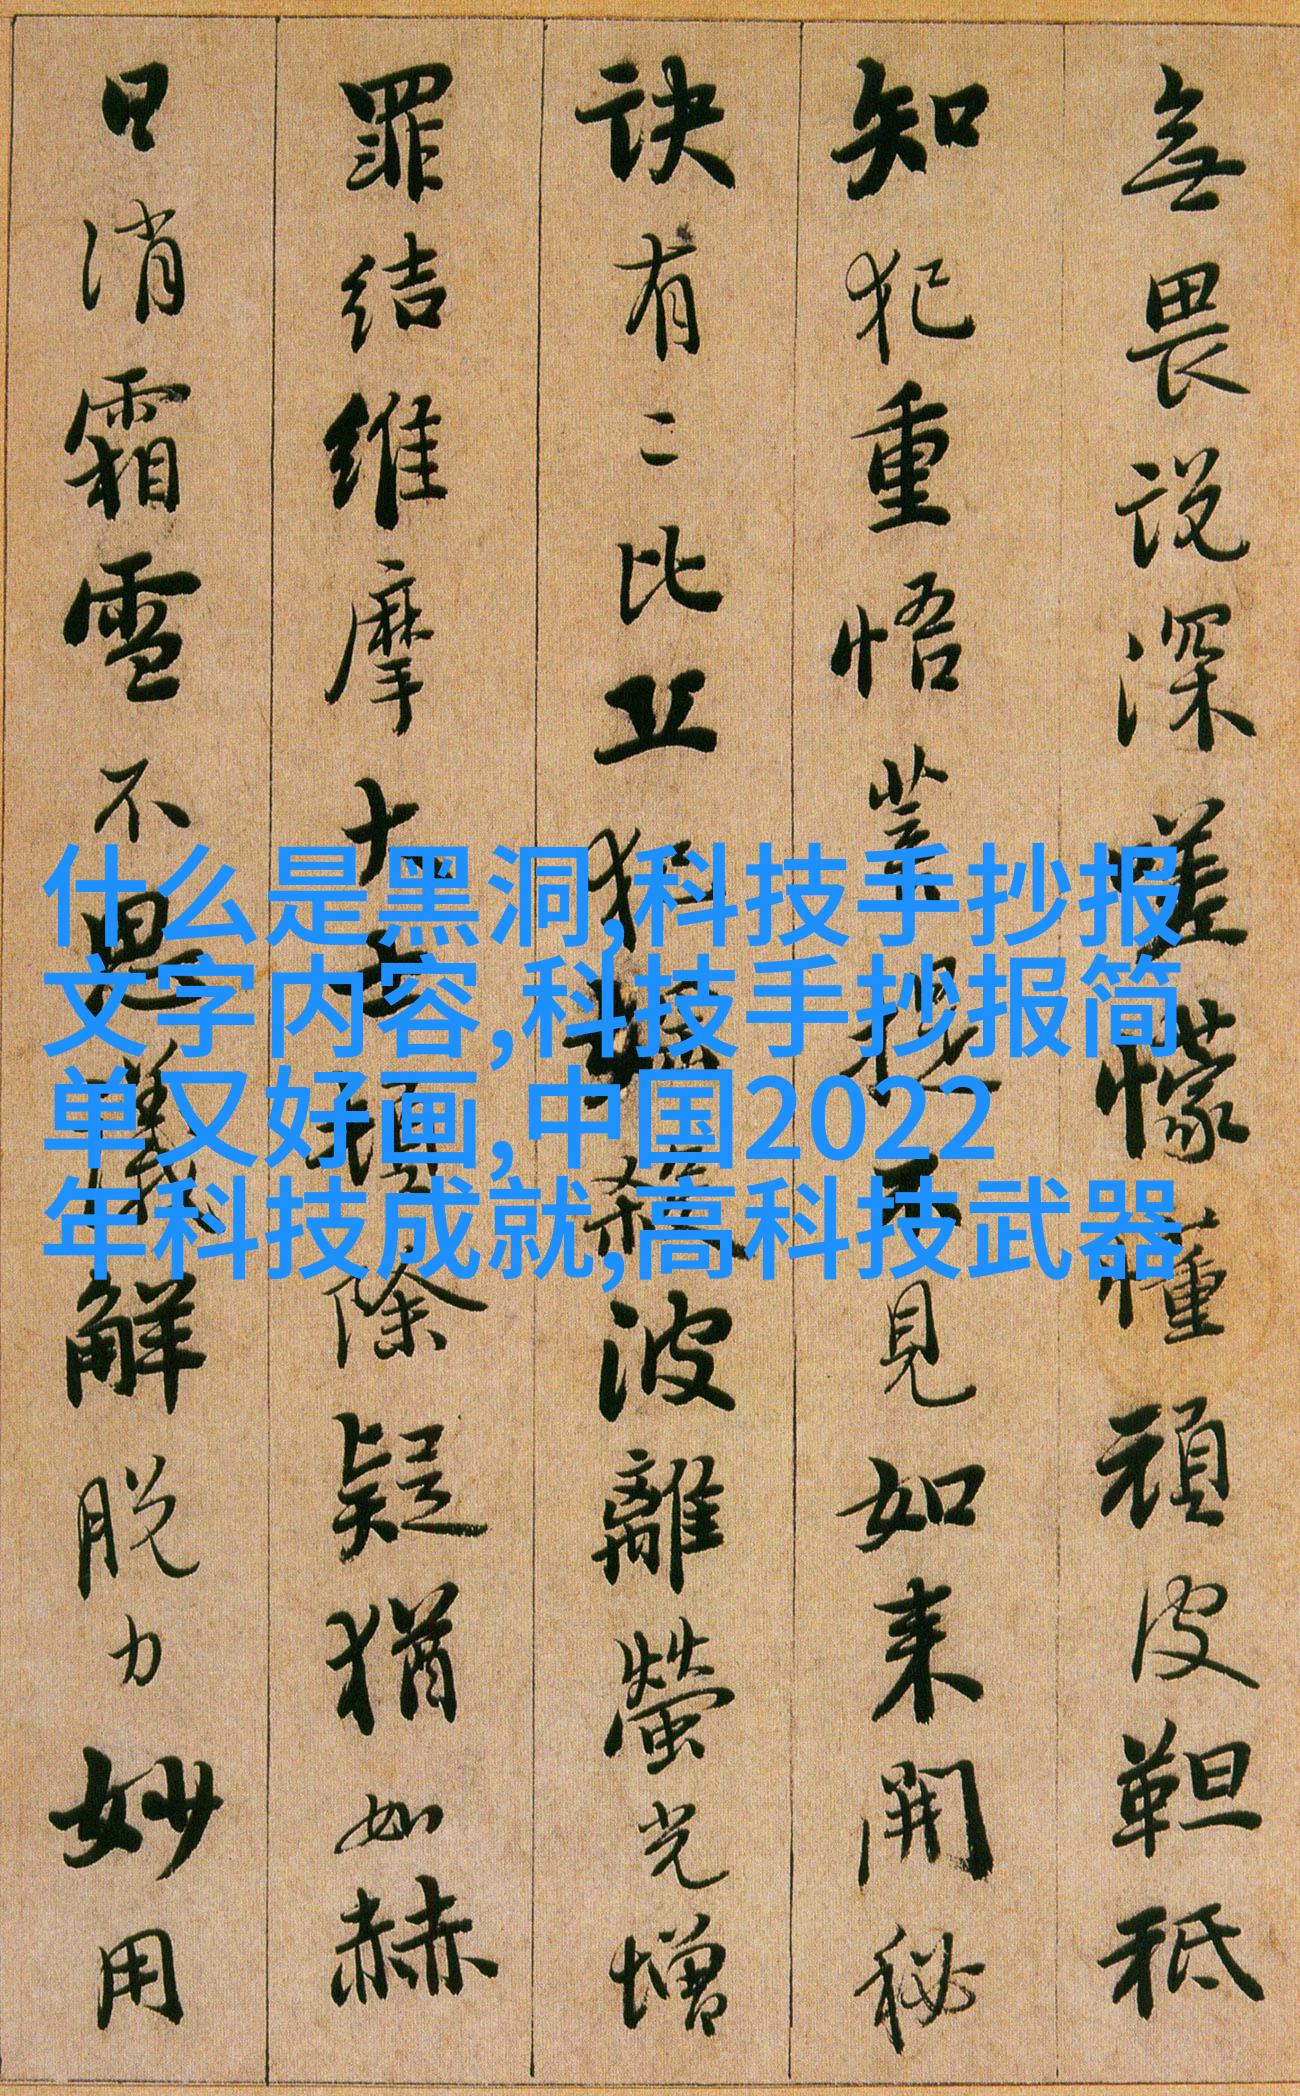 無畏説深嗟懞懂頑皮靼秪
知犯重悟菩提不見如来開秘
訣有二比丘犯婬殺波離螢光增
罪结維摩大士頓除疑猶如赫
日消霜雪不思議解脱力妙用
什么是黑洞,科技手抄报
文字内容,科技手抄报简
单又好画,中国2022
年科技成就,高科技武器